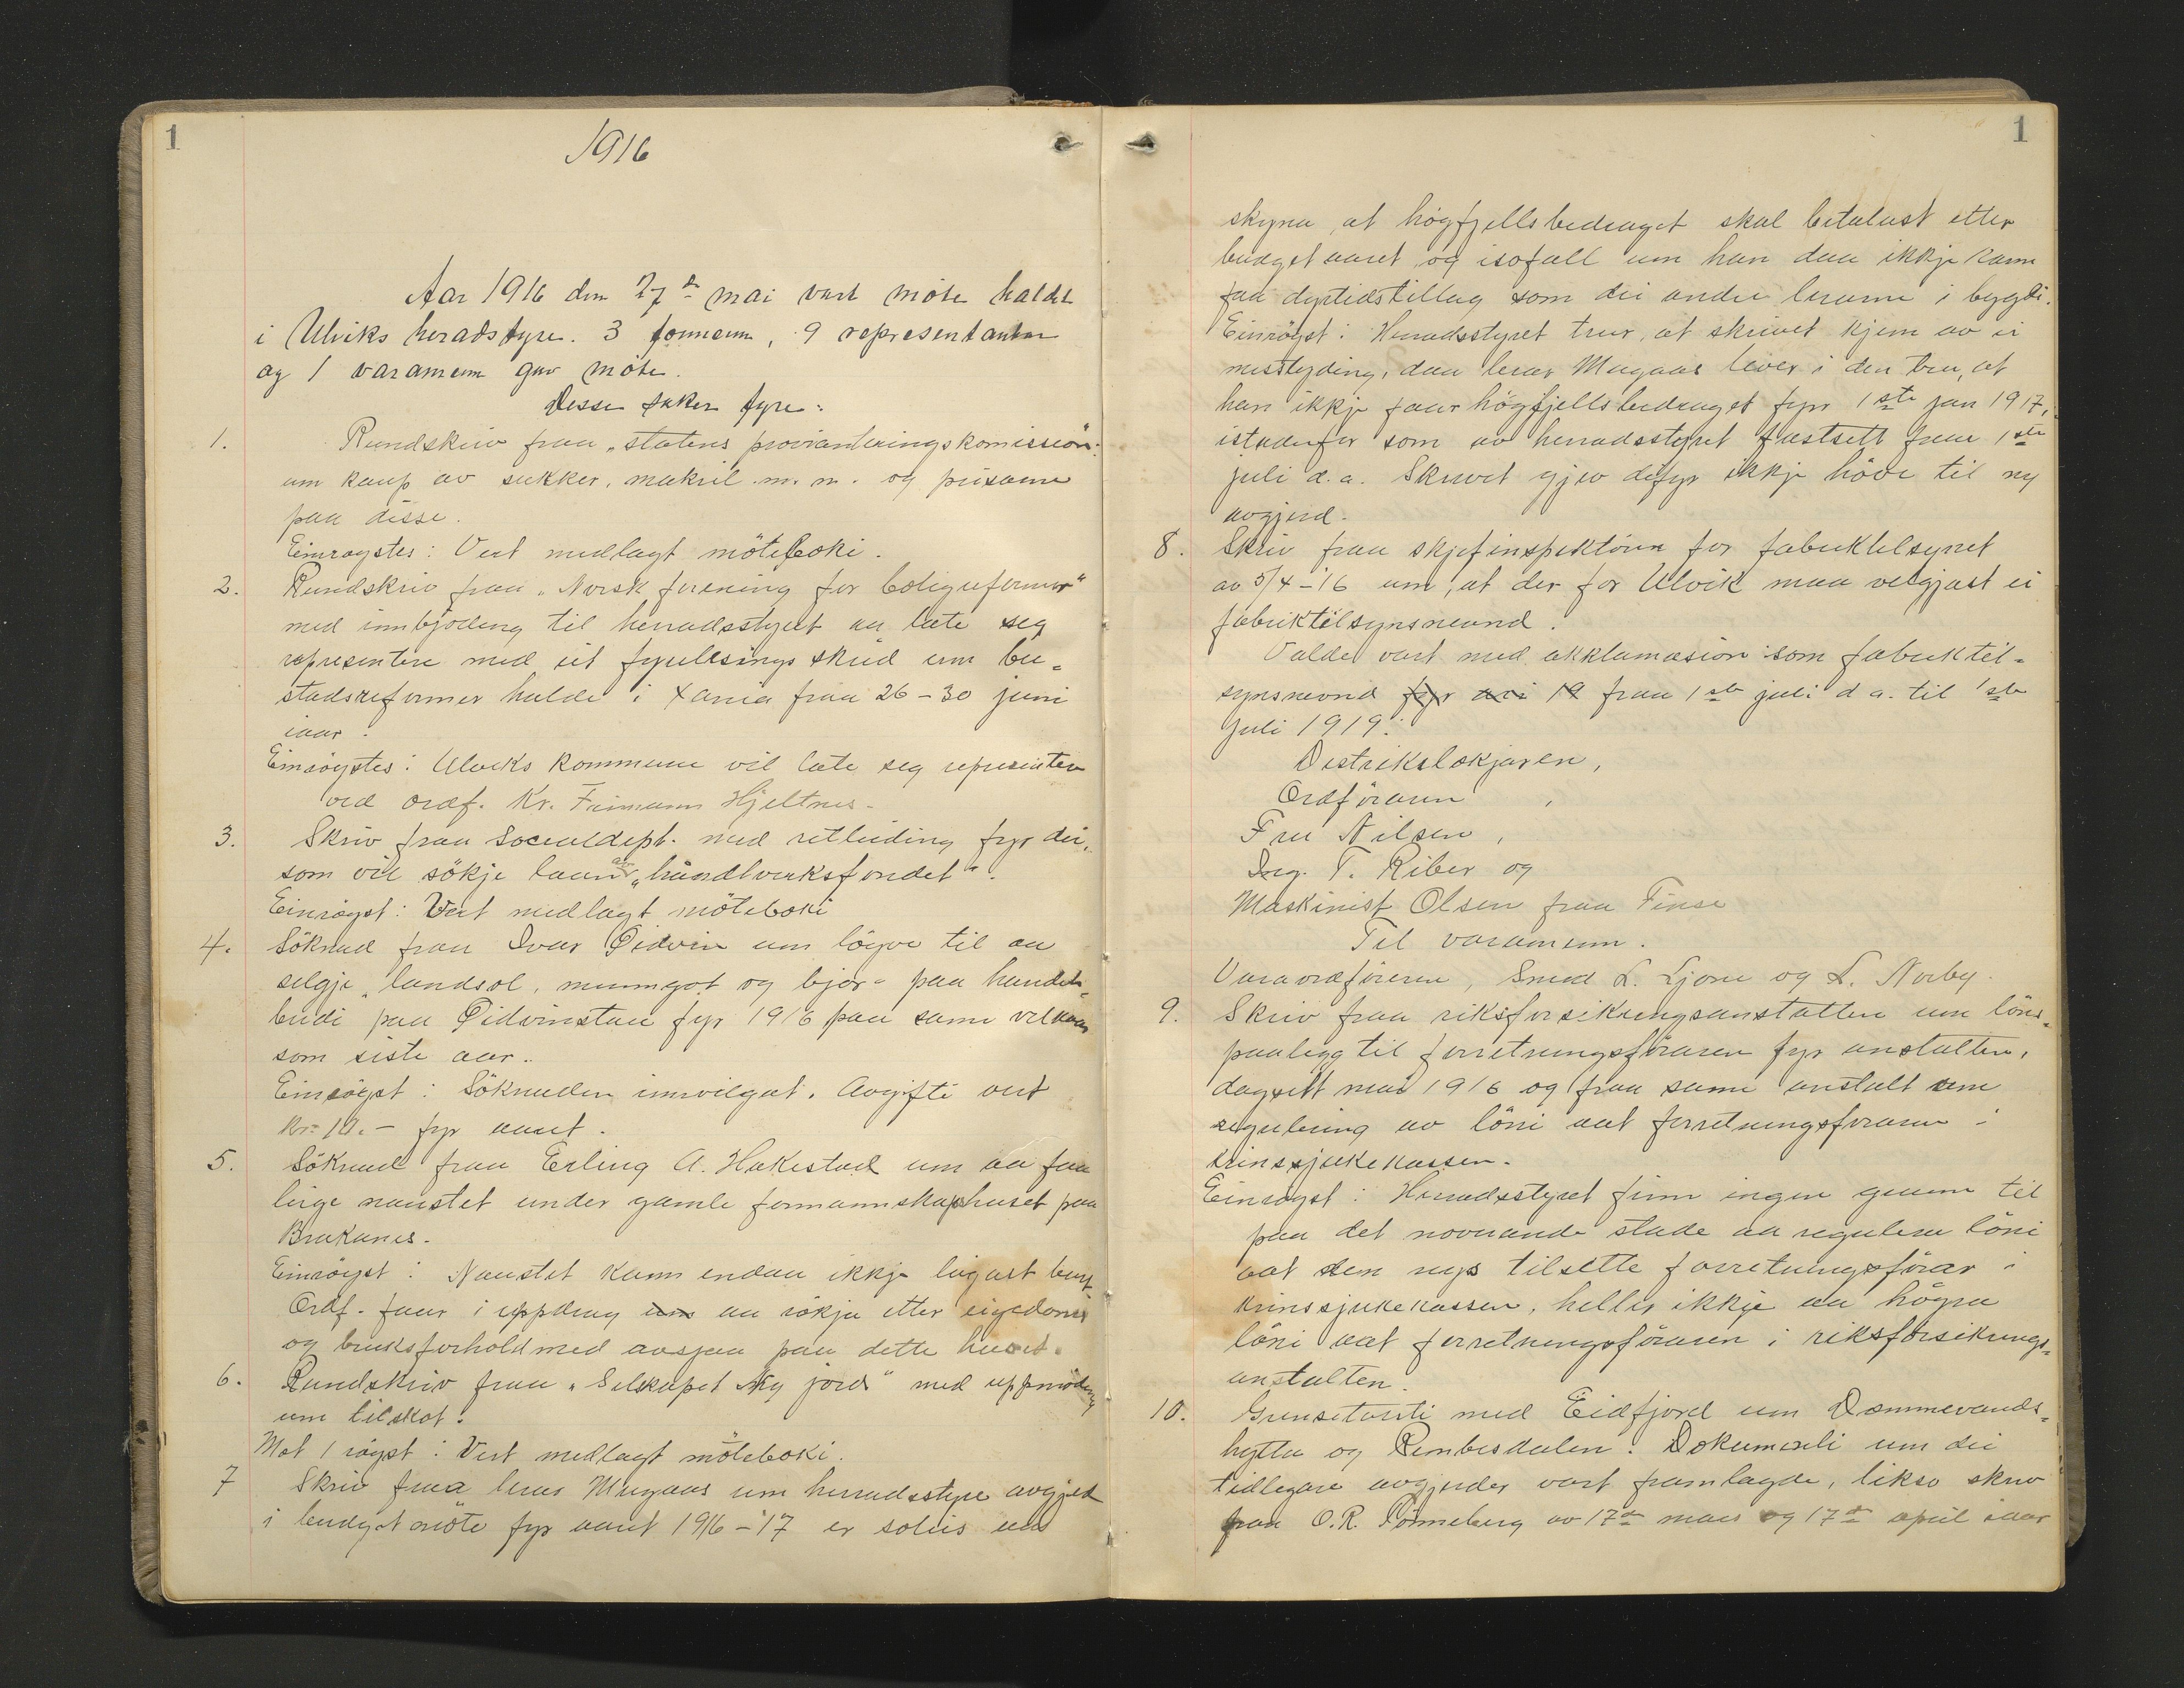 1
1916
Aar 1916 den 27de mai vart möte haldt
i Ulviks heradstyre. 3 formenn, 9 representantar
og 1 varamenn gav möte.
Desse saker fyre:
1. Rundskriv fraa "statens provianteringskomission"
um kaup av sukker, makril m. m. og prisarne
paa disse.
Eimrøystes: Vert medlagt möteboki.
2. Rundskriv fraa "Norsk forening for boligreformer"
med innbjoding til heradsstyret aa late seg
representere med eit fyrelesings skeid um bu-
stadsreformer halde i Xania fraa 26 - 30 juni
iaar.
Einröystes: Ulviks kommune vil late seg representere
ved ordf. Kr. Frimann Hjeltnes.
3. Skriv fraa Socialdept. med retleiding fyr dei,
som vil sökje laan av "håndtverksfondet".
Einröyst: Vert medlagt möteboki
4. Söknad fraa Ivar Øidvin um löyve til aa
selgje "landsøl, mungot og bjor" paa handels-
budi paa Øidvinstau fyr 1916 paa same vilkaar
som siste aar.
Einröyst: Söknaden innvilgat. Avgifti vert
Kr. 10.- fyr aaret.
5. Söknad fraa Erling A. Hakestad um aa faa
leige naustet under gamle formannskapshuset paa
Brakanes.
Einröyst: Naustet kann endaa ikkje leigast burt.
Ordf. faar i uppdrag um aa sökja etter eigedoms
og bruksforhold med avsyn paa dette huset.
6. Rundskriv fraa "Selskapet Ny jord" med uppmoding
um tilskot.
Mot 1 röyst: Vert medlagt möteboki.
7 Skriv fraa lærar Mugaas um herradsstyre avgjerd
i budgetmöte fyr aaret 1916-'17 er soleis aa
1
skyna, at högfjellsbedraget skal betalast etter
budgetaaret, og isofall um han daa ikkje kann
faa dyrtidstillag som dei andre lerarne i bygdi.
Einröyst: Herradsstyret trur, at skrivet kjem av ei
mistyding, daa lerar Mugaas lever i den tru, at
han ikkje faar högfjellsbedraget fyr 1ste jan 1917,
istadenfor som av herradsstyret fastsett fraa 1ste
juli d.a. Skrivet gjev difyr ikkje höve til ny
avgjerd.
8. Skriv fraa skjefinspektören for fabriktilsynet
av 5/4-'16 um, at der for Ulvik maa velgjast ei
fabriktilsynsnevnd.
Valde vart med akklamasion som fabriktil-
synsnevnd fyr 19 fraa 1ste juli d a. til 1ste
juli 1919:
Distrikslækjaren,
Ordföraren,
Fru Nilsen,
Ing. T. Riber og
Maskinist Olsen fraa Finse
Til varamenn.
Varaordföreren, Smed L. Ljone og L. Norby.
9. Skriv fraa riksforsikringsanstalten um löns-
paalegg til forretningsföraren fyr anstalten,
dagsett mai 1916 og fraa same anstalt um
regulering av löni aat forretningsföraren i
krinssjukekassen.
Einröyst: Herradsstyret finn ingen grunn til
paa det noverande stade aa regulera löni
aat den nys tilsette forretningsförar i
krinssjukekassen, heller ikkje aa högra
löni aat forretningsföraren i riksforsikrings-
anstalten.
10. Grensetvisti med Eidfjord um Dæmmevands-
hytta og Rembesdalen. Dokumenti um dei
tidlegare avgjerder vart framlagde, likso skriv
fraa O. R. Pönneberg av 17de mars og 17de april iaar